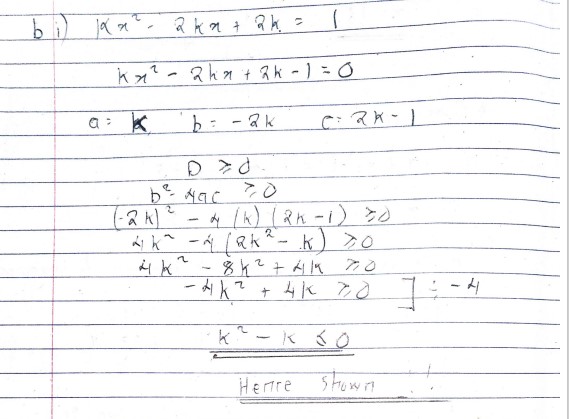 b i) kx² - 2kx + 2k = 1
kx² - 2kx + 2k - 1 = 0
a = k b = -2k c = 2k - 1
D ≥ 0
b² - 4ac ≥ 0
(-2k)² - 4(k)(2k-1) ≥ 0
4k² - 4(2k² - k) ≥ 0
4k² - 8k² + 4k ≥ 0
-4k² + 4k ≥ 0 ] ÷ -4
k² - k ≤ 0
Hence Shown !!